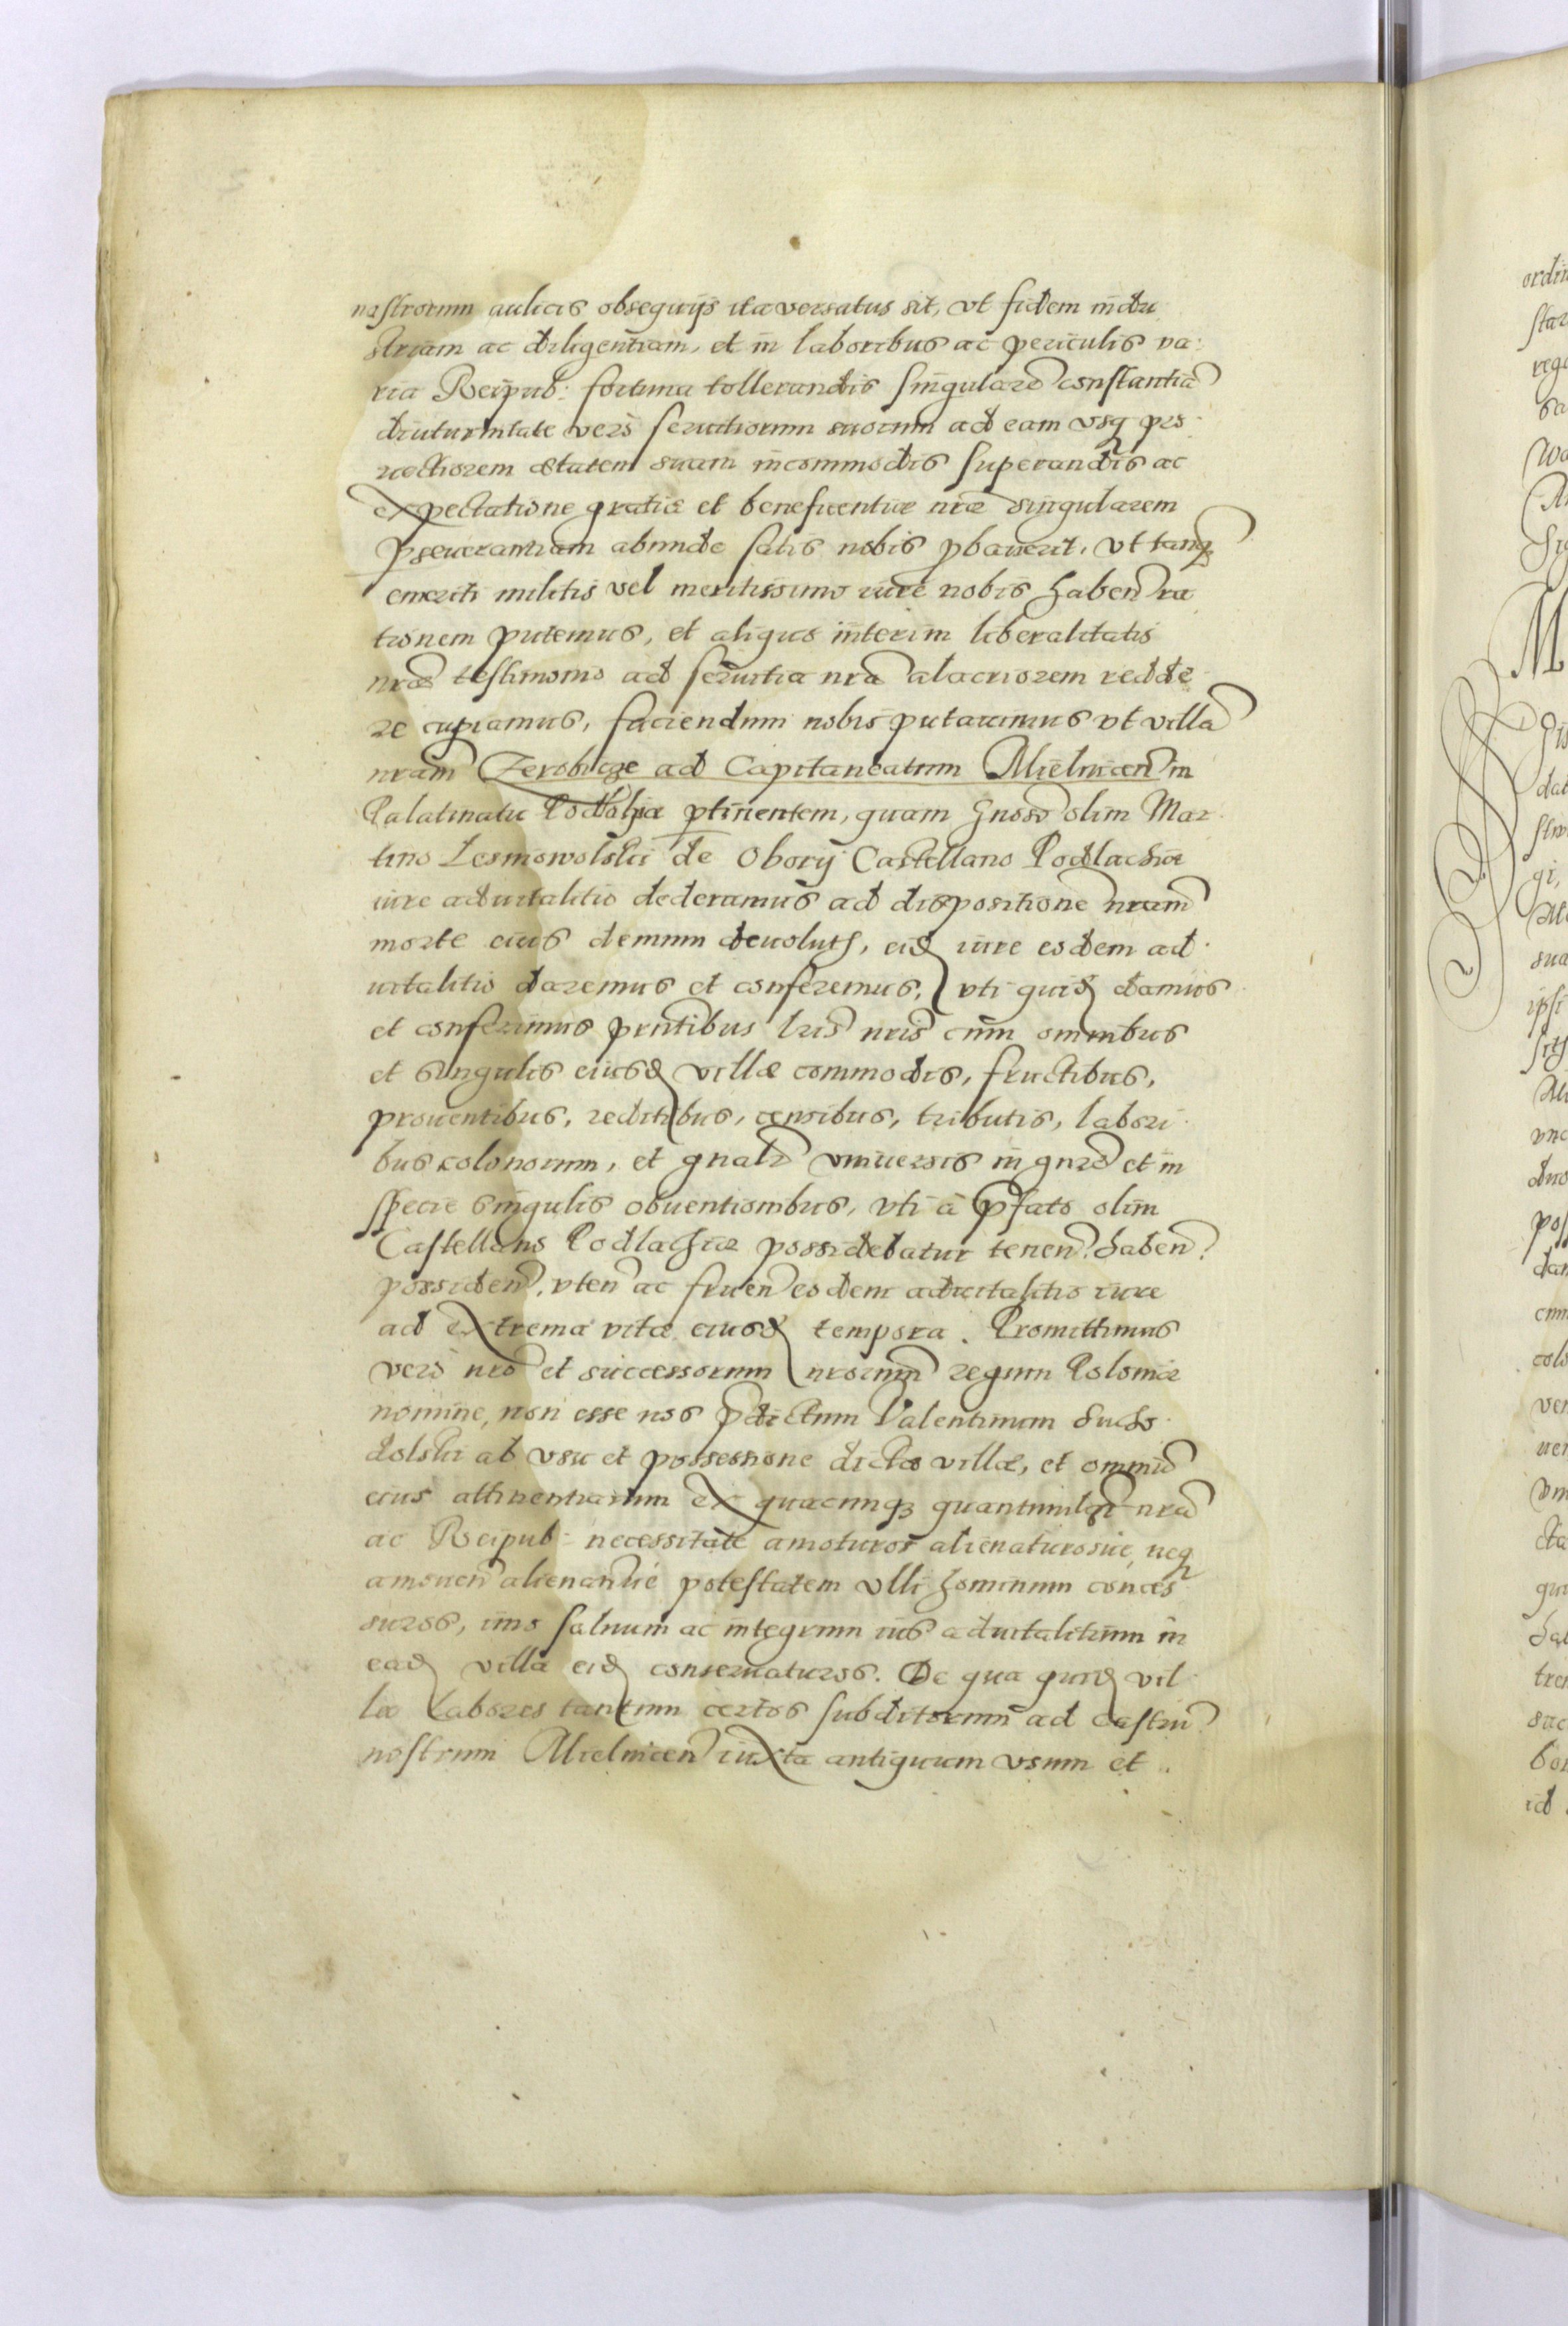 nostrorum aulicis obsequijs ita versatus sit, vt fidem indu
striam ac diligentiam, et in laboribus ac periculis va-
ria Reipub: fortuna tollerandis singulare constantia
diuturnitate vero seruitiorum suorum ad eam vsq pro-
uectiorem ætatem suam incommodis superandis ac
expectatione gratiæ et beneficentiæ nræ singularem
pseuerantiam abunde satis nobis pbauerit, vt tanq
emeriti militis vel meritissimo iure nobis haben ra
tionem putemus, et aliquo interim liberalitatis
nræ testimonio ad seruitia nra alacriorem redde-
re cupiamus, faciendum nobis putauimus vt villa
nram Zerobicze ad Capitaneatum Mielnicen in
Palatinatu Podlahiæ ptinentem, quam Gnoso olim Mar-
tino Lesniowolskii de Obory Castellano Podlachiæ
iure aduitalitio dederamus ad dispositione nram
morte eius demum deuolut, eid iure eodem ad-
uitalitio daremus et conferemus, vti quid damus
et conferimus prntibus lris nris cum omnibus
et singulis eiusd villæ commodis, fructibus,
prouentibus, reditibus, censibus, tributis, labori-
bus colonorum, et gnalr vniuersis in gnre et in
specie singulis obuentionibus, vti à pfato olim
Castellano Podlachiæ possidebatur tenen: haben:
possiden, vten ac fruen eodem aduitalitio iure
ad extrema vitæ eiusd tempora. Promittimus
vero nro et successorum nrorum regum Poloniæ
nomine, non esse nos pdictum Valentinum Sucho-
dolskii ab vsu et possessione dictæ villæ, et omniu
eius attinentiarum ex quacunq quantumlibt nra
ac Reipub: necessitate amoturos alienaturosue, neq
amouen alienanue potestatem vlli hominum conces-
suros, imo saluum ac integrum ius aduitalitium in
ead villa eid conseruaturos. De qua quid vil-
læ labores tantum certos subditorum ad castru
nostrum Mielnicen iuxta antiquum vsum et